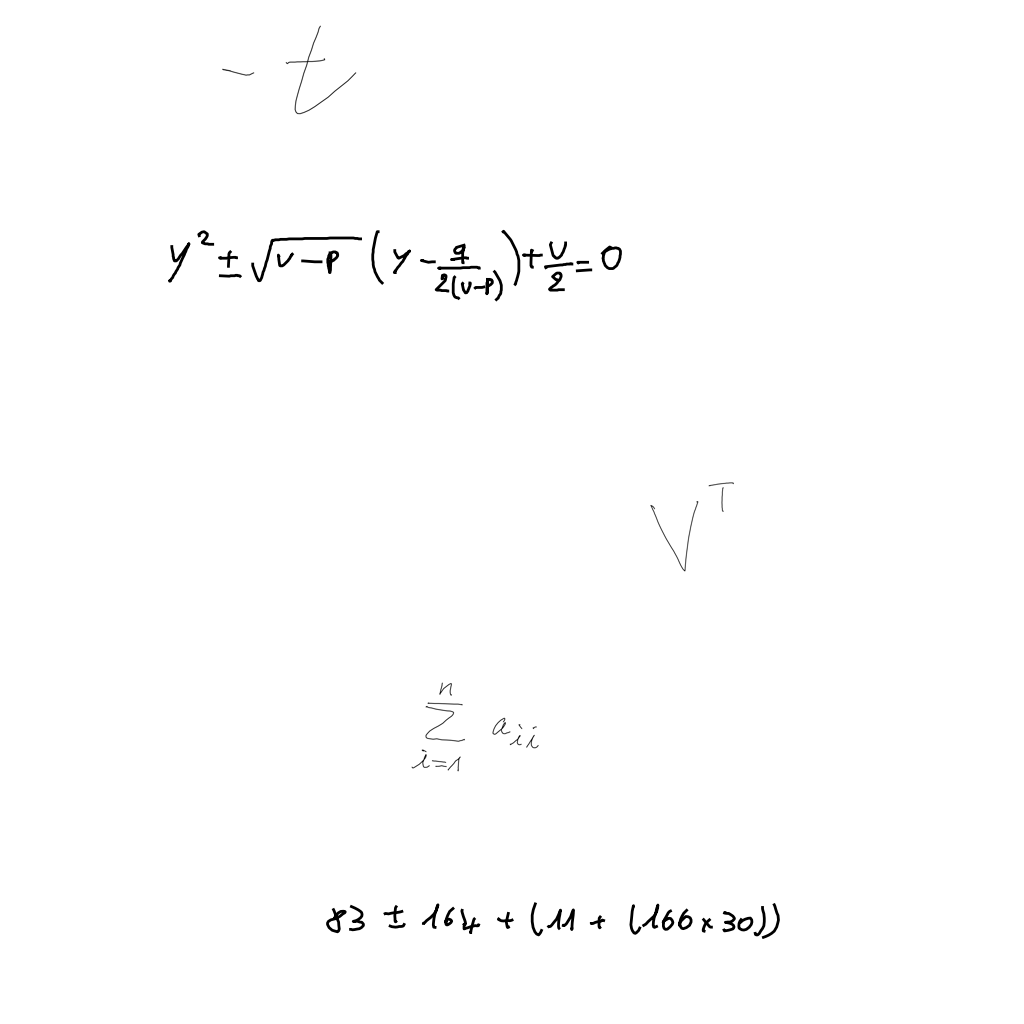 $-t$
$y^2 \pm \sqrt{v-p} \left( y - \frac{q}{2(v-p)} \right) + \frac{v}{2} = 0$
$V^T$
$\sum_{i=1}^{n} a_{ii}$
$83 \pm 164 + (11 + (166 \times 30))$